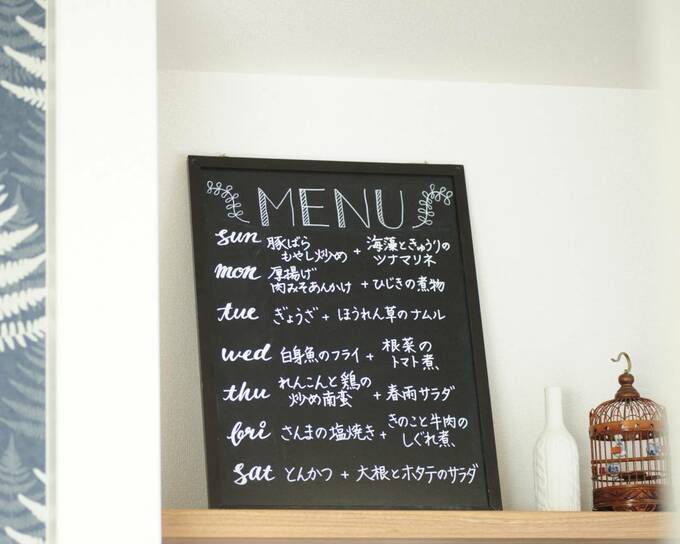 MENU
sun 豚ばら もやし炒め + 海藻ときゅうりの ツナマリネ
mon 厚揚げ 肉みそあんかけ + ひじきの煮物
tue ぎょうざ + ほうれん草のナムル
wed 白身魚のフライ + 根菜の トマト煮、
thu れんこんと鶏の 炒め南蛮 + 春雨サラダ
fri さんまの塩焼き + きのこと牛肉の しぐれ煮、
sat とんかつ + 大根とホタテのサラダ